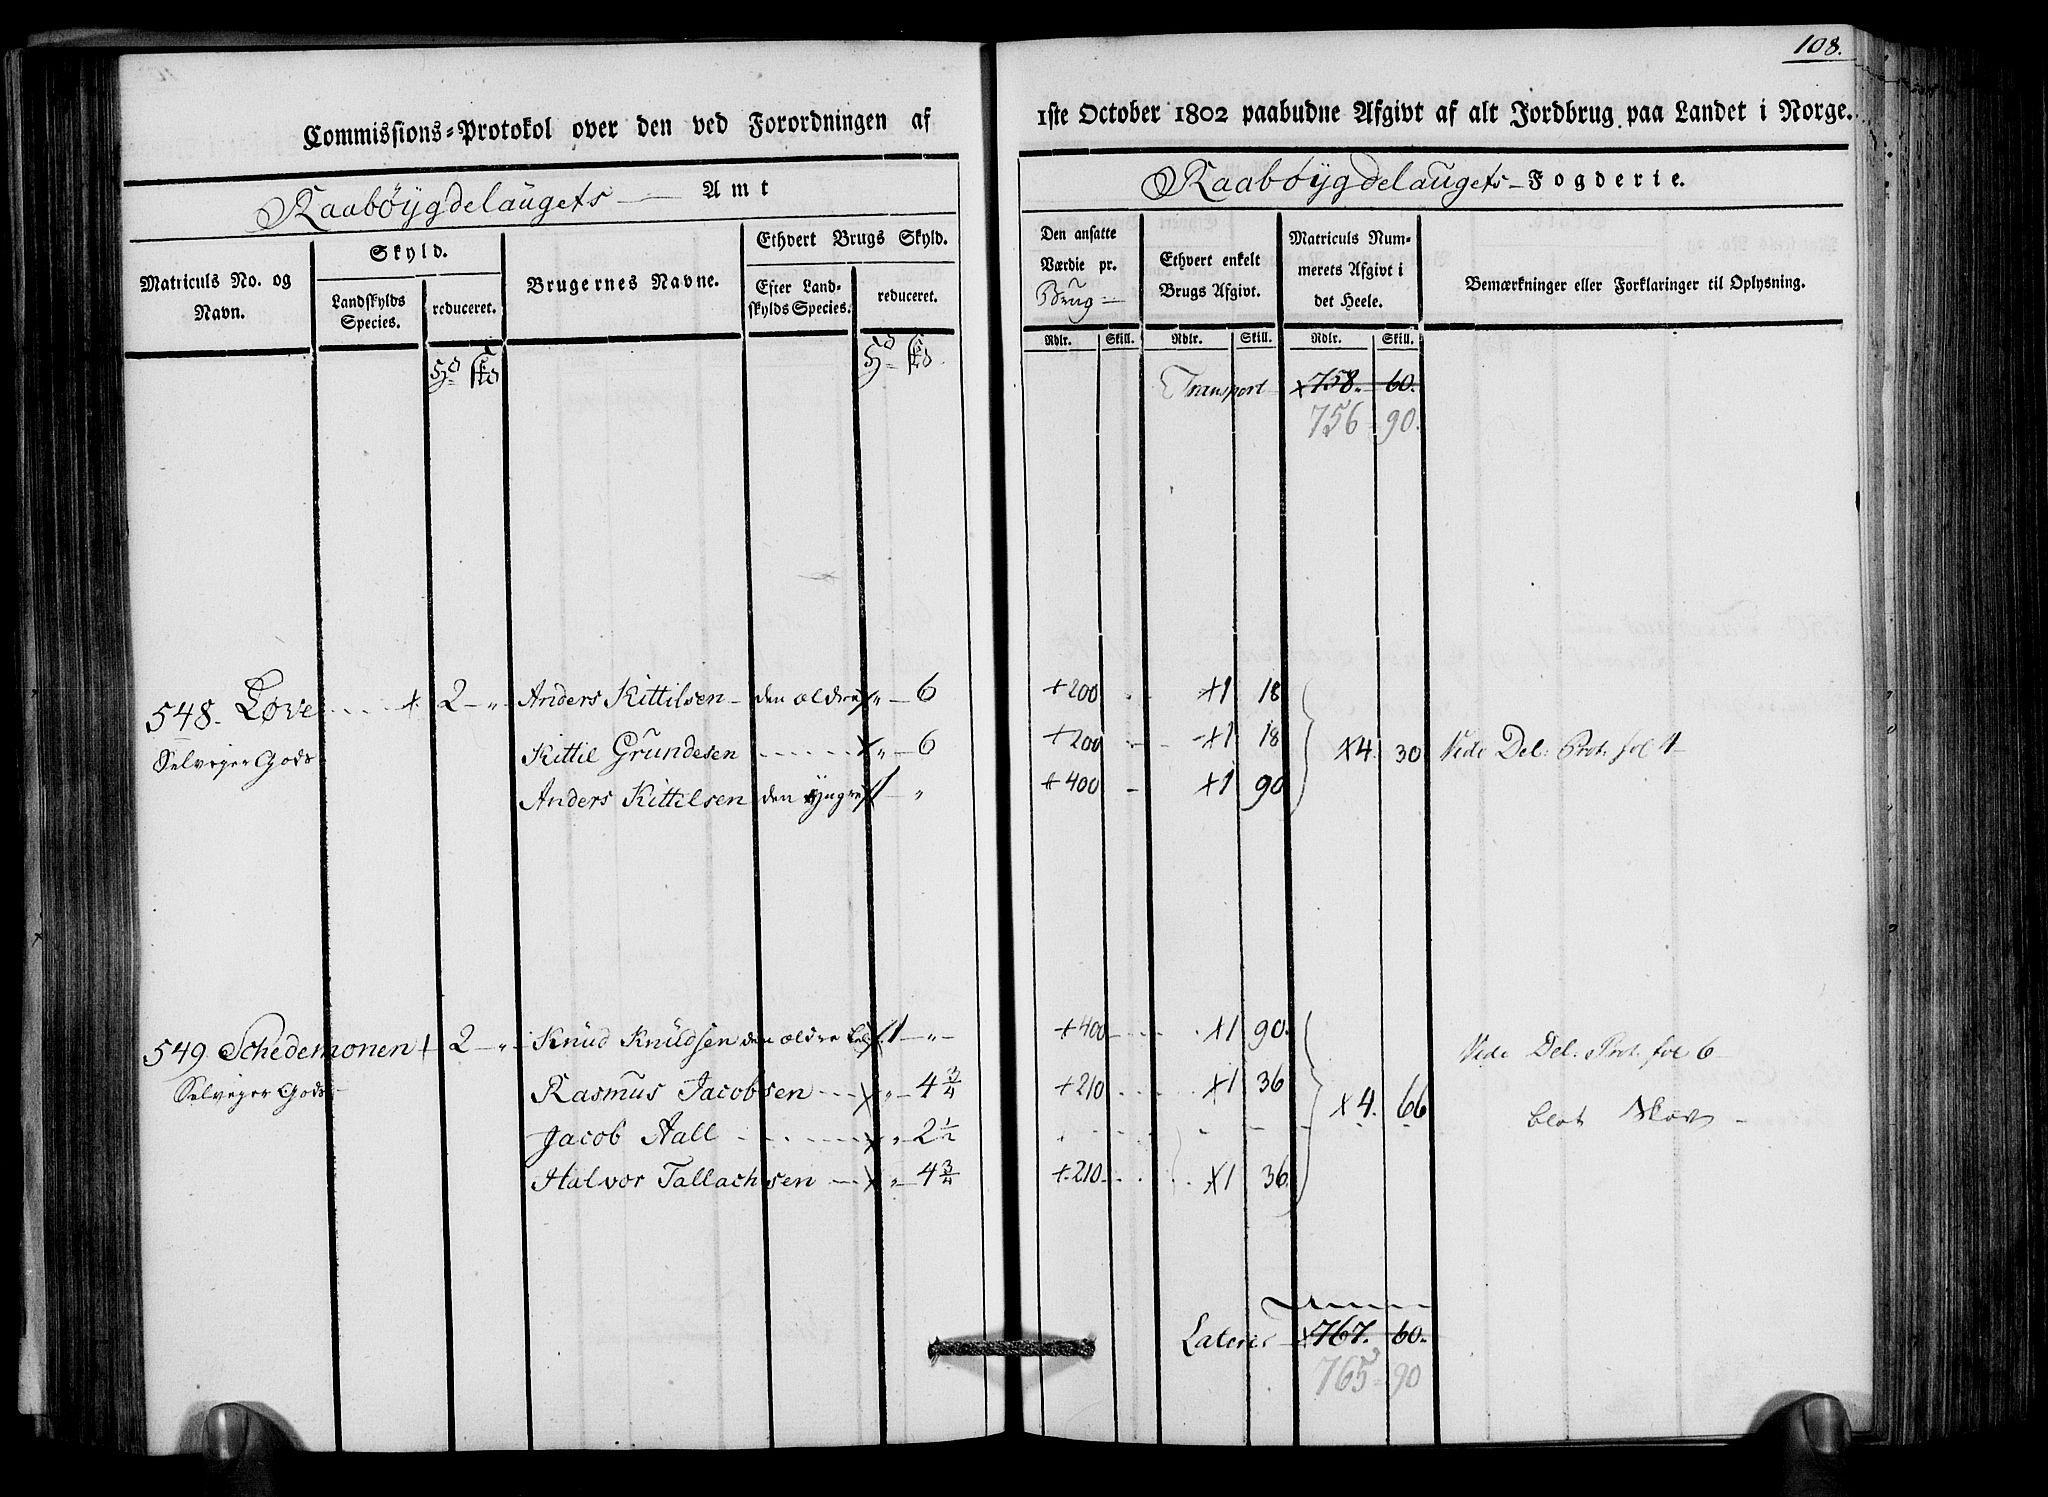 108.
Commissions-Protokol over den ved Forordningen af 1ste October 1802 paabudne Afgivt af alt Jordbrug paa Landet i Norge.
Raabøygdelaugets Amt
Raabøygdelaugets Fogderie.
Matriculs No. og Navn.
Skyld.
Landskylds Species.
reduceret.
Brugernes Navne.
Ethvert Brugs Skyld.
Efter Landskylds Species.
reduceret.
Den ansatte Værdie pr. Brug
Ethvert enkelt Brugs Afgivt.
Matriculs Nummerets Afgivt i det Heele.
Bemærkninger eller Forklaringer til Oplysning.
Rdlr. Skill. Rdlr. Skill. Rdlr. Skill.
Transport x758. 60.
756 90.
548. Løve x 2 „ Anders Kittilsen den ældre x „ 6 +200 x1 18
Selveyer Gods Kittil Grundesen x „ 6 +200 x1 18 x4. 30 Vide Del: Prot. fol 4
Anders Kittilsen den yngre x1 „ +400 x1 90
549. Schedemonen + 2 „ Knud Knudsen den ældre x1 „ +400 x1 90 Vide Del: Prot. fol 6
Selveyer Gods Rasmus Jacobsen x „ 4 3/4 +210 x1 36 x4. 66
Jacob Aall x „ 2 1/2 blot Skov
Halvor Tallachsen x „ 4 3/4 +210 x1 36
Lateris x767. 60.
765 90